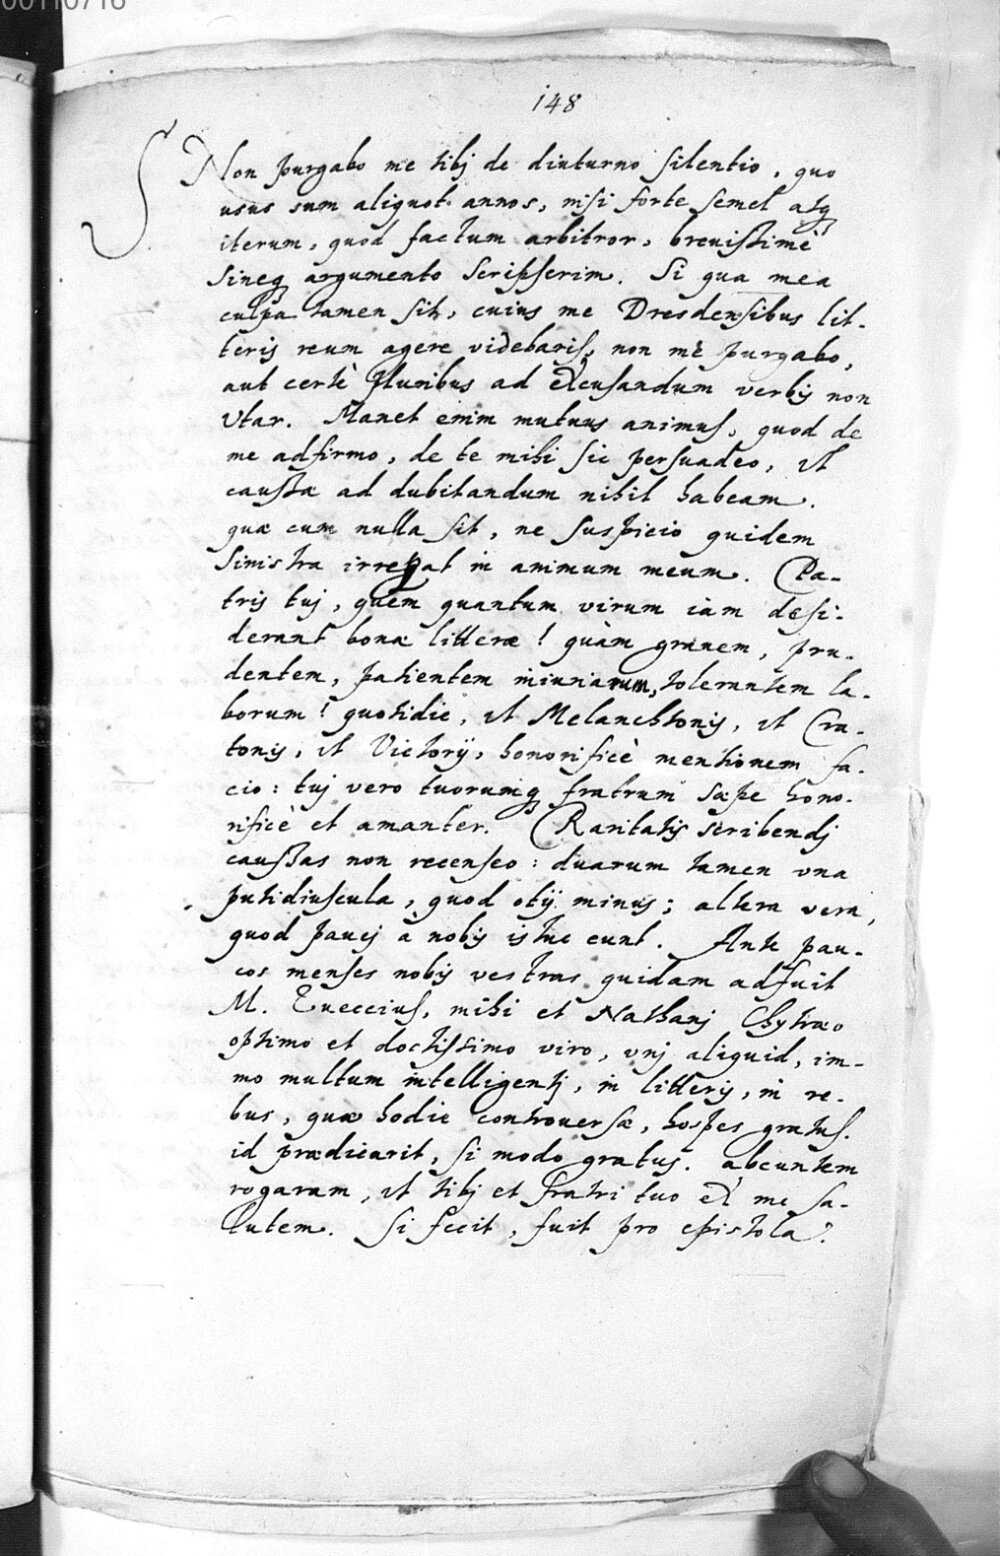 00110716
148
S Non purgabo me tibj de diuturno silentio, quo
usus sum aliquot annos, nisi forte semel atq
iterum, quod factum arbitror, breuissimè
sineq argumento scripserim. Si qua mea
culpa tamen sit, cuius me Dresdensibus lit-
teris reum agere videbaris, non mè purgabo,
aut certè pluribus ad excusandum verbis non
vtar. Manet enim mutuus animus, quod de
me adfirmo, de te mihi sic persuadeo, vt
caussæ ad dubitandum nihil habeam.
quæ cum nulla sit, ne suspicio quidem
sinistra irrepat in animum meum. Pa-
tris tuj, quem quantum virum iam desi-
derant bonæ litteræ! quàm grauem, pru-
dentem, patientem iniuriarum, tolerantem la-
borum! quotidie, vt Melanchtonis, vt Cra-
tonis, vt Victorij, honorificè mentionem fa-
cio: tuj vero tuorumq fratrum sæpe hono-
rificè et amanter. Raritatis scribendj
caussas non recenseo: duarum tamen vna
putidiuscula, quod otij minus; altera vera,
quod paucj à nobis istuc eunt. Ante pau-
cos menses nobis vestras quidam adfuit
M. Queccius, mihi et Nathanj Chytræo
optimo et doctissimo viro, vnj aliquid, im-
mo multum intelligentj, in litteris, in re-
bus, quæ hodie controuersæ, hospes gratus.
id prædicarit, si modo gratus. abeuntem
rogaram, vt tibj et fratri tuo ex me sa-
lutem. Si fecit, fuit pro epistola.